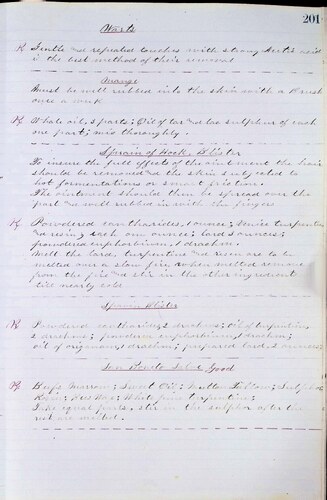 201
Warts
Rx Gentle and repeated touches with strong acid
is the best method of their removal
Mange
Must be well rubbed into the skin with a Brush
once a week
Rx Whale oil, 8 parts; Oil of tar and lac sulphur of each
one part; mix thoroughly.
Sprain of Hock, Blister
To insure the full effects of the ointment the hair
should be removed and the skin subjected to
hot fomentations or smart friction.
The ointment should then be spread over the
part and well rubbed in with the fingers
Rx Powdered cantharides, 1 ounce; Venice turpentine
and resin, each one ounce; lard, ounces;
powdered euphorbium, 1 drachm.
Melt the lard, turpentine and resin to be
melted over a slow fire, when melted remove
from the fire and stir in the other ingredients
till nearly cold
Spavin Blister
Rx Powdered cantharides, drachms; oil of turpentine,
drachms; powdered euphorbium, 1 drachm;
oil of origanum, 1 drachm; prepared lard, ounces;
Salve Good
Rx Beefs Marrow; Sweet Oil; Mutton Tallow; Sulphur
Rosin; Bees Wax; White pine Turpentine;
Take equal parts, stir in the sulphur after the
rest are melted.